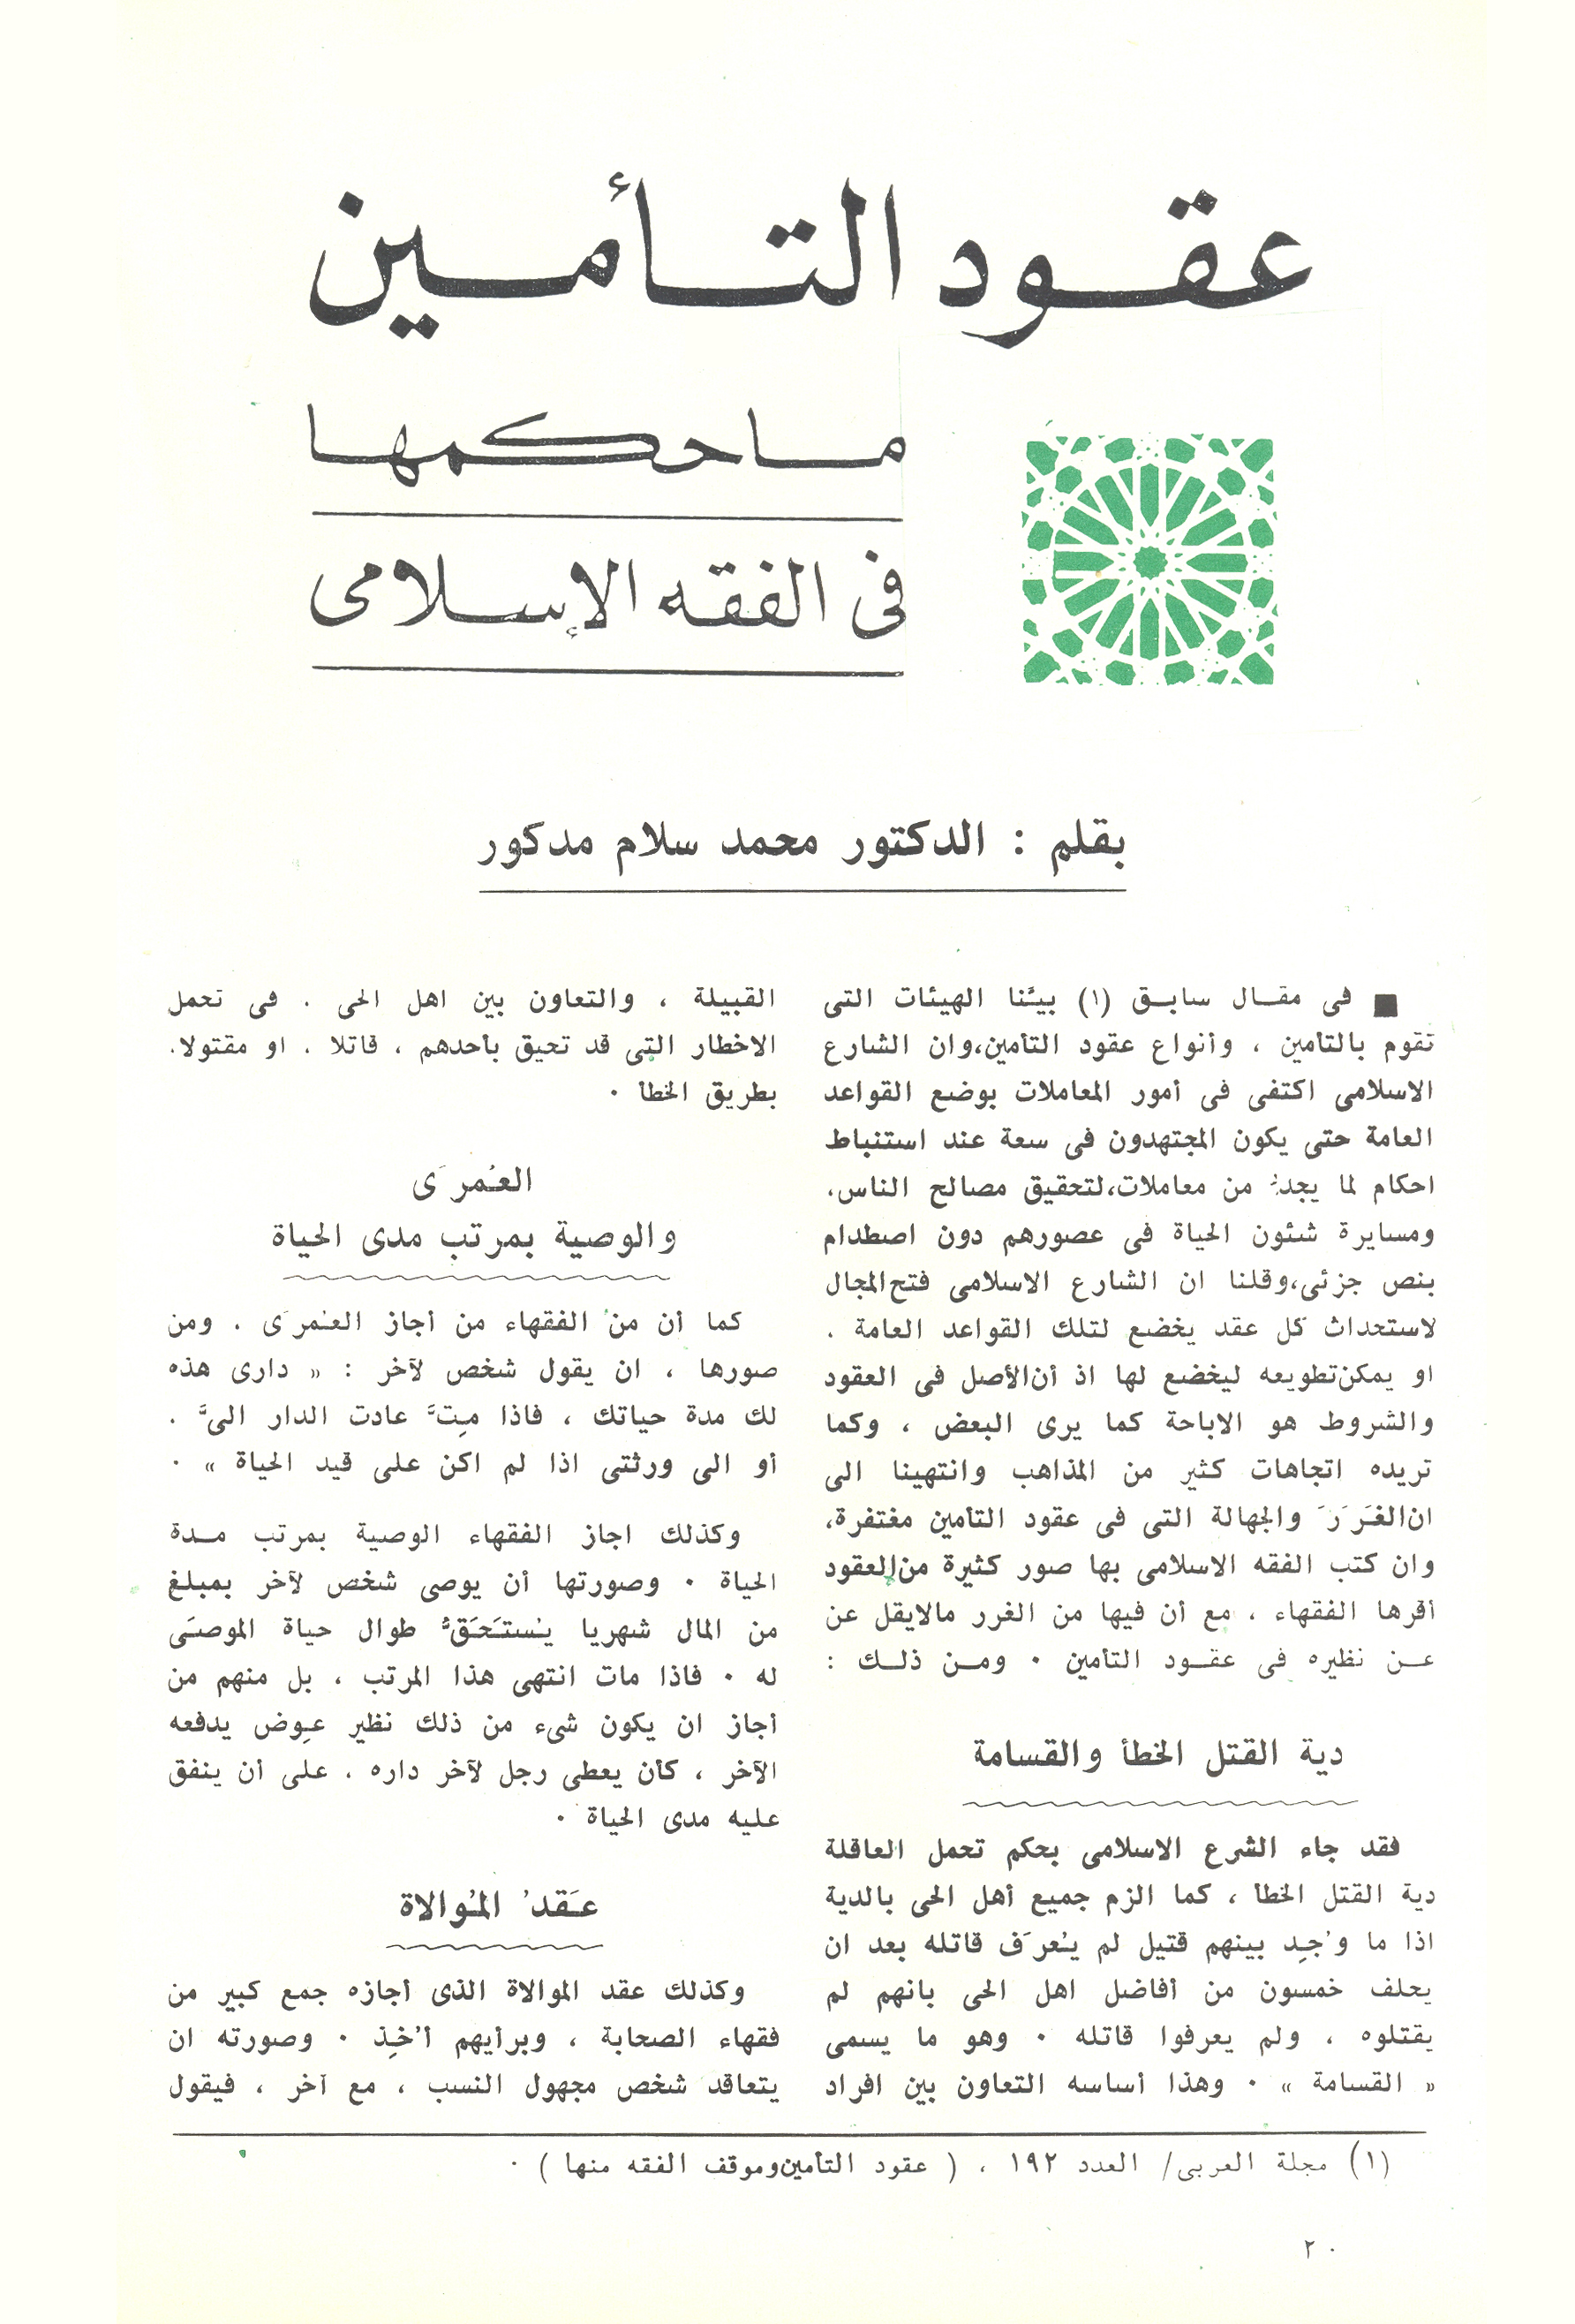 عقود التأمين
ما حكمها
فى الفقه الإسلامى
بقلم : الدكتور محمد سلام مدكور
■ فى مقال سابق (١) بيّنا الهيئات التى
تقوم بالتأمين ، وأنواع عقود التأمين،وان الشارع
الاسلامى اكتفى فى أمور المعاملات بوضع القواعد
العامة حتى يكون المجتهدون فى سعة عند استنباط
احكام لما يجدّ من معاملات،لتحقيق مصالح الناس،
ومسايرة شئون الحياة فى عصورهم دون اصطدام
بنص جزئى،وقلنا ان الشارع الاسلامى فتح المجال
لاستحداث كل عقد يخضع لتلك القواعد العامة ،
او يمكن تطويعه ليخضع لها اذ أن الأصل فى العقود
والشروط هو الاباحة كما يرى البعض ، وكما
تريده اتجاهات كثير من المذاهب وانتهينا الى
ان الغَرَرَ والجهالة التى فى عقود التأمين مغتفرة،
وان كتب الفقه الاسلامى بها صور كثيرة من العقود
أقرها الفقهاء ، مع أن فيها من الغرر مالايقل عن
عن نظيره فى عقود التأمين ٠ ومن ذلك :
دية القتل الخطأ والقسامة
فقد جاء الشرع الاسلامى بحكم تحمل العاقلة
دية القتل الخطأ ، كما الزم جميع أهل الحى بالدية
اذا ما وُجِد بينهم قتيل لم يُعرَف قاتله بعد ان
يحلف خمسون من أفاضل اهل الحى بانهم لم
يقتلوه ، ولم يعرفوا قاتله ٠ وهو ما يسمى
« القسامة » ٠ وهذا أساسه التعاون بين افراد
القبيلة ، والتعاون بين اهل الحى ، فى تحمل
الاخطار التى قد تحيق بأحدهم ، قاتلا ، او مقتولا،
بطريق الخطأ ٠
العُمرَى
والوصية بمرتب مدى الحياة
كما أن من الفقهاء من أجاز العُمرَى ، ومن
صورها ، ان يقول شخص لآخر : « دارى هذه
لك مدة حياتك ، فاذا مِتَّ عادت الدار الىَّ ،
أو الى ورثتى اذا لم اكن على قيد الحياة » ٠
وكذلك اجاز الفقهاء الوصية بمرتب مدة
الحياة ٠ وصورتها أن يوصى شخص لآخر بمبلغ
من المال شهريا يُستَحَقُّ طوال حياة الموصَى
له ٠ فاذا مات انتهى هذا المرتب ، بل منهم من
أجاز ان يكون شىء من ذلك نظير عِوض يدفعه
الآخر ، كأن يعطى رجل لآخر داره ، على أن ينفق
عليه مدى الحياة ٠
عَقدُ المُوالاة
وكذلك عقد الموالاة الذى أجازه جمع كبير من
فقهاء الصحابة ، وبرأيهم أُخِذ ٠ وصورته ان
يتعاقد شخص مجهول النسب ، مع آخر ، فيقول
(١) مجلة العربى/ العدد ١٩٢ ، ( عقود التأمين وموقف الفقه منها ) ٠
٢٠